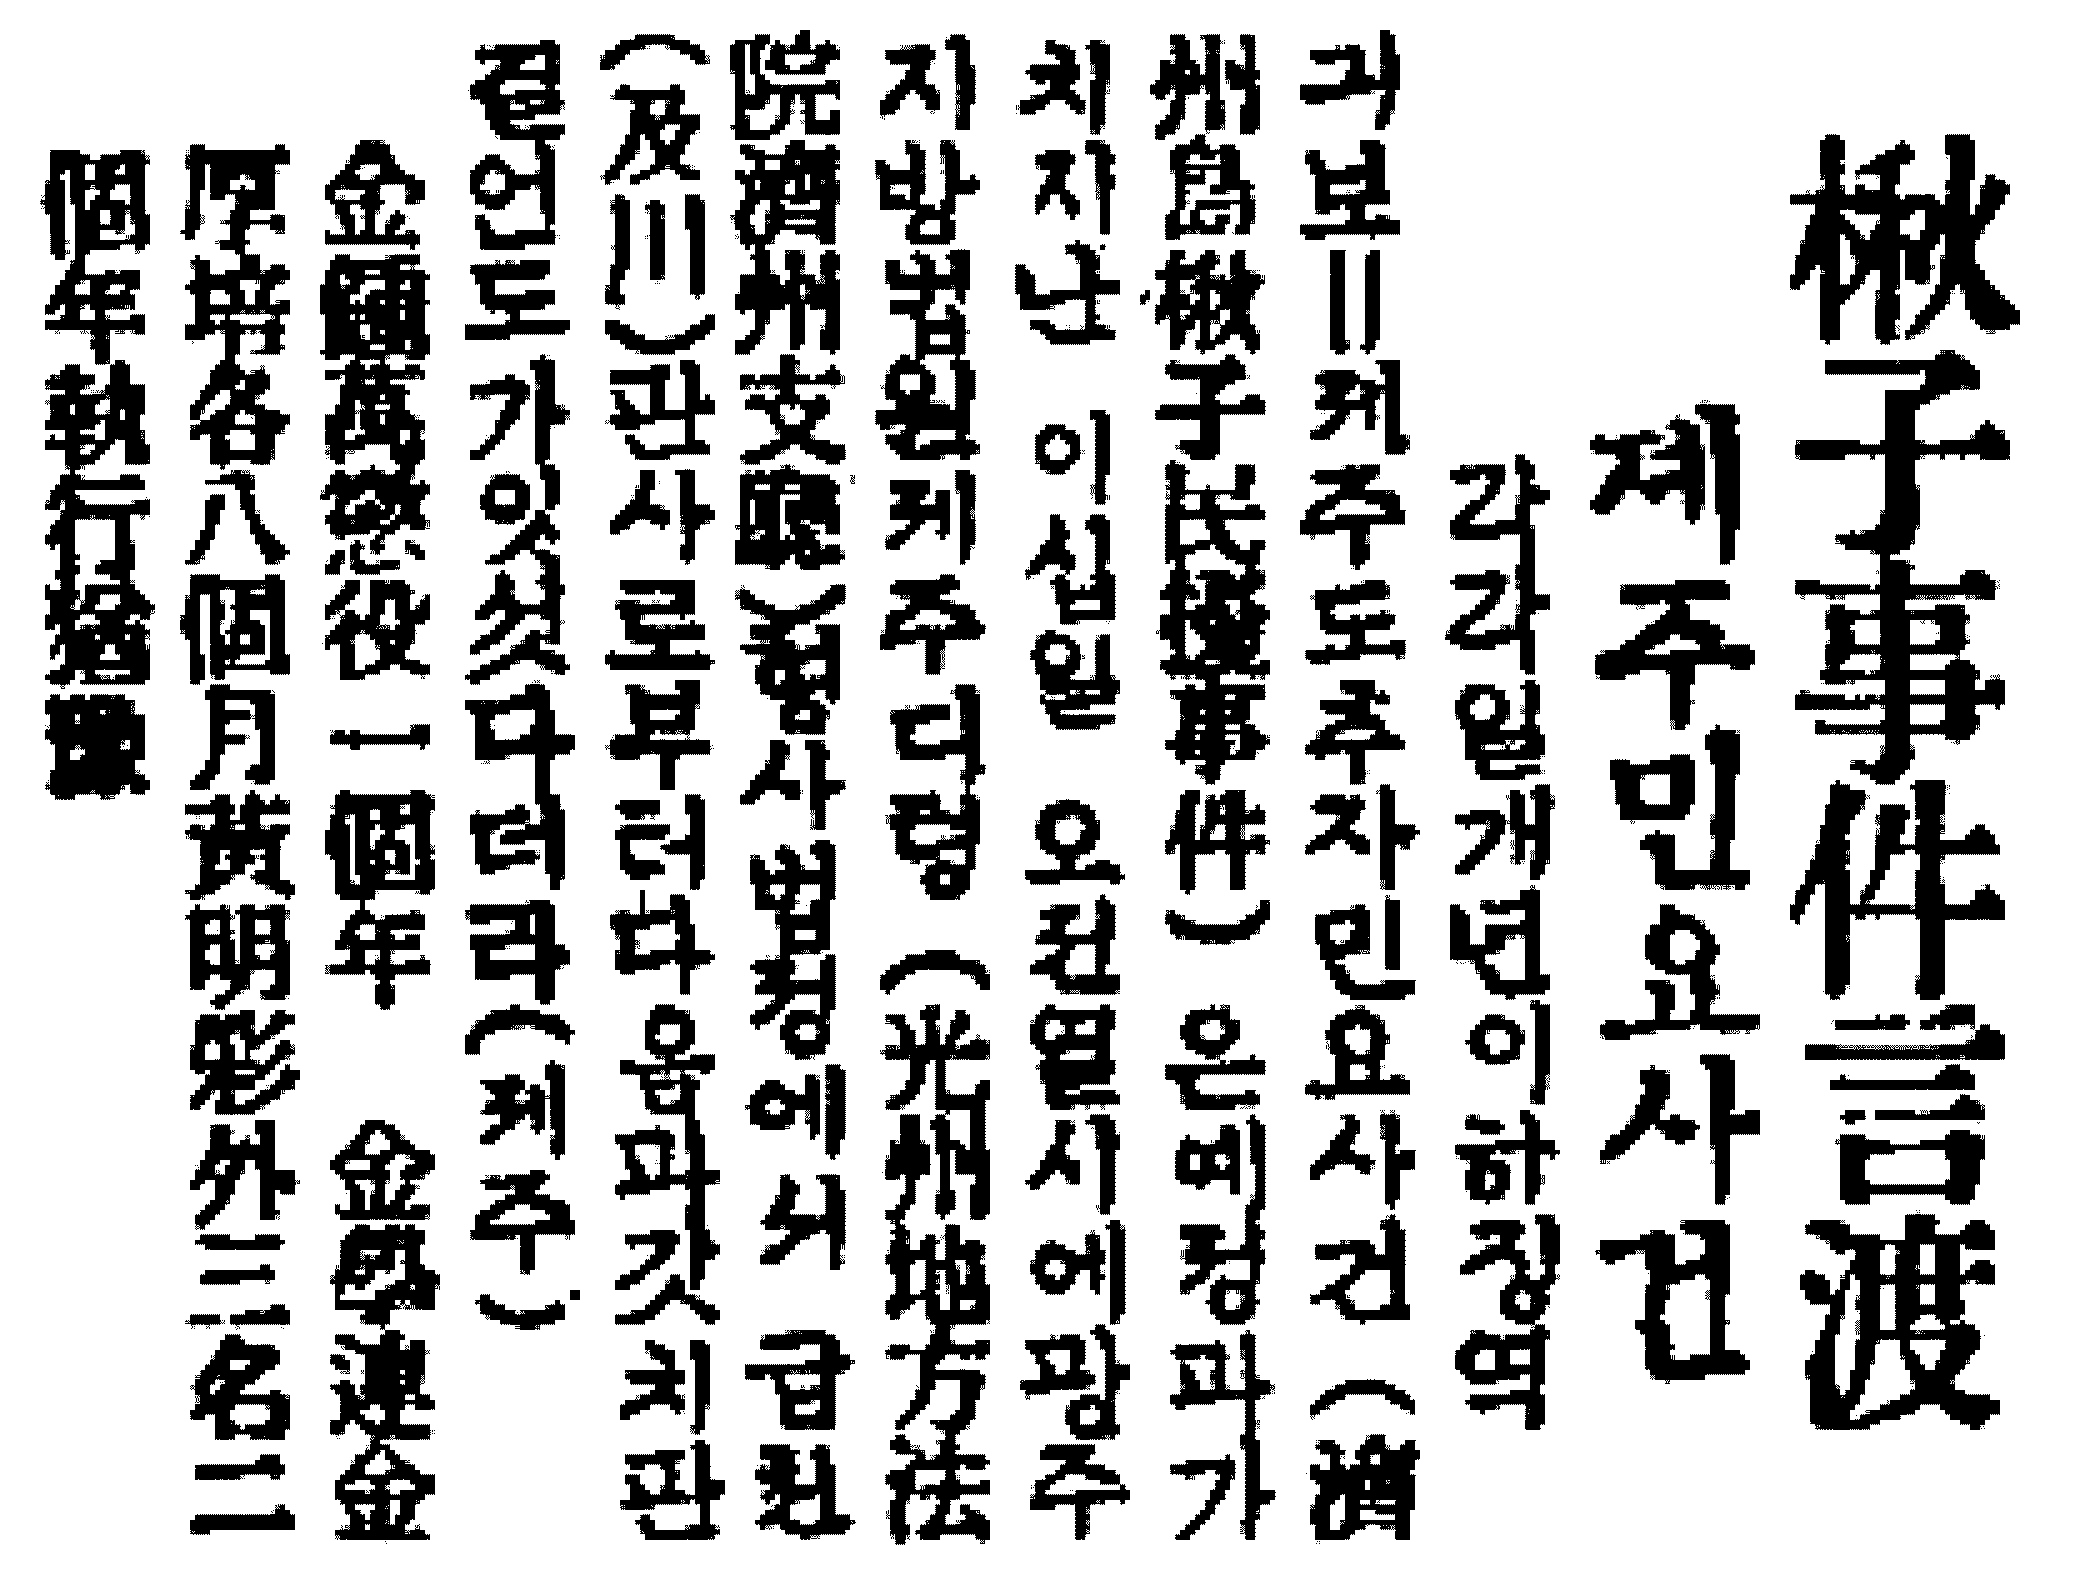 楸子事件言渡
제주민요사건
각각일개년이하징역
긔보＝제주도추자민요사건(濟
州島楸子民擾事件)은예정과가
치지난 이십일 오전열시에광주
지방법원제주디텽(光州地方法
院濟州支廳)형사법정에서 급천
(及川)판사로부터다음과갓치판
결언도가잇섯다더라(제주)
金鍾萬懲役一個年 金學連金
厚培各八個月黃明彩外三名二
個年執行猶豫